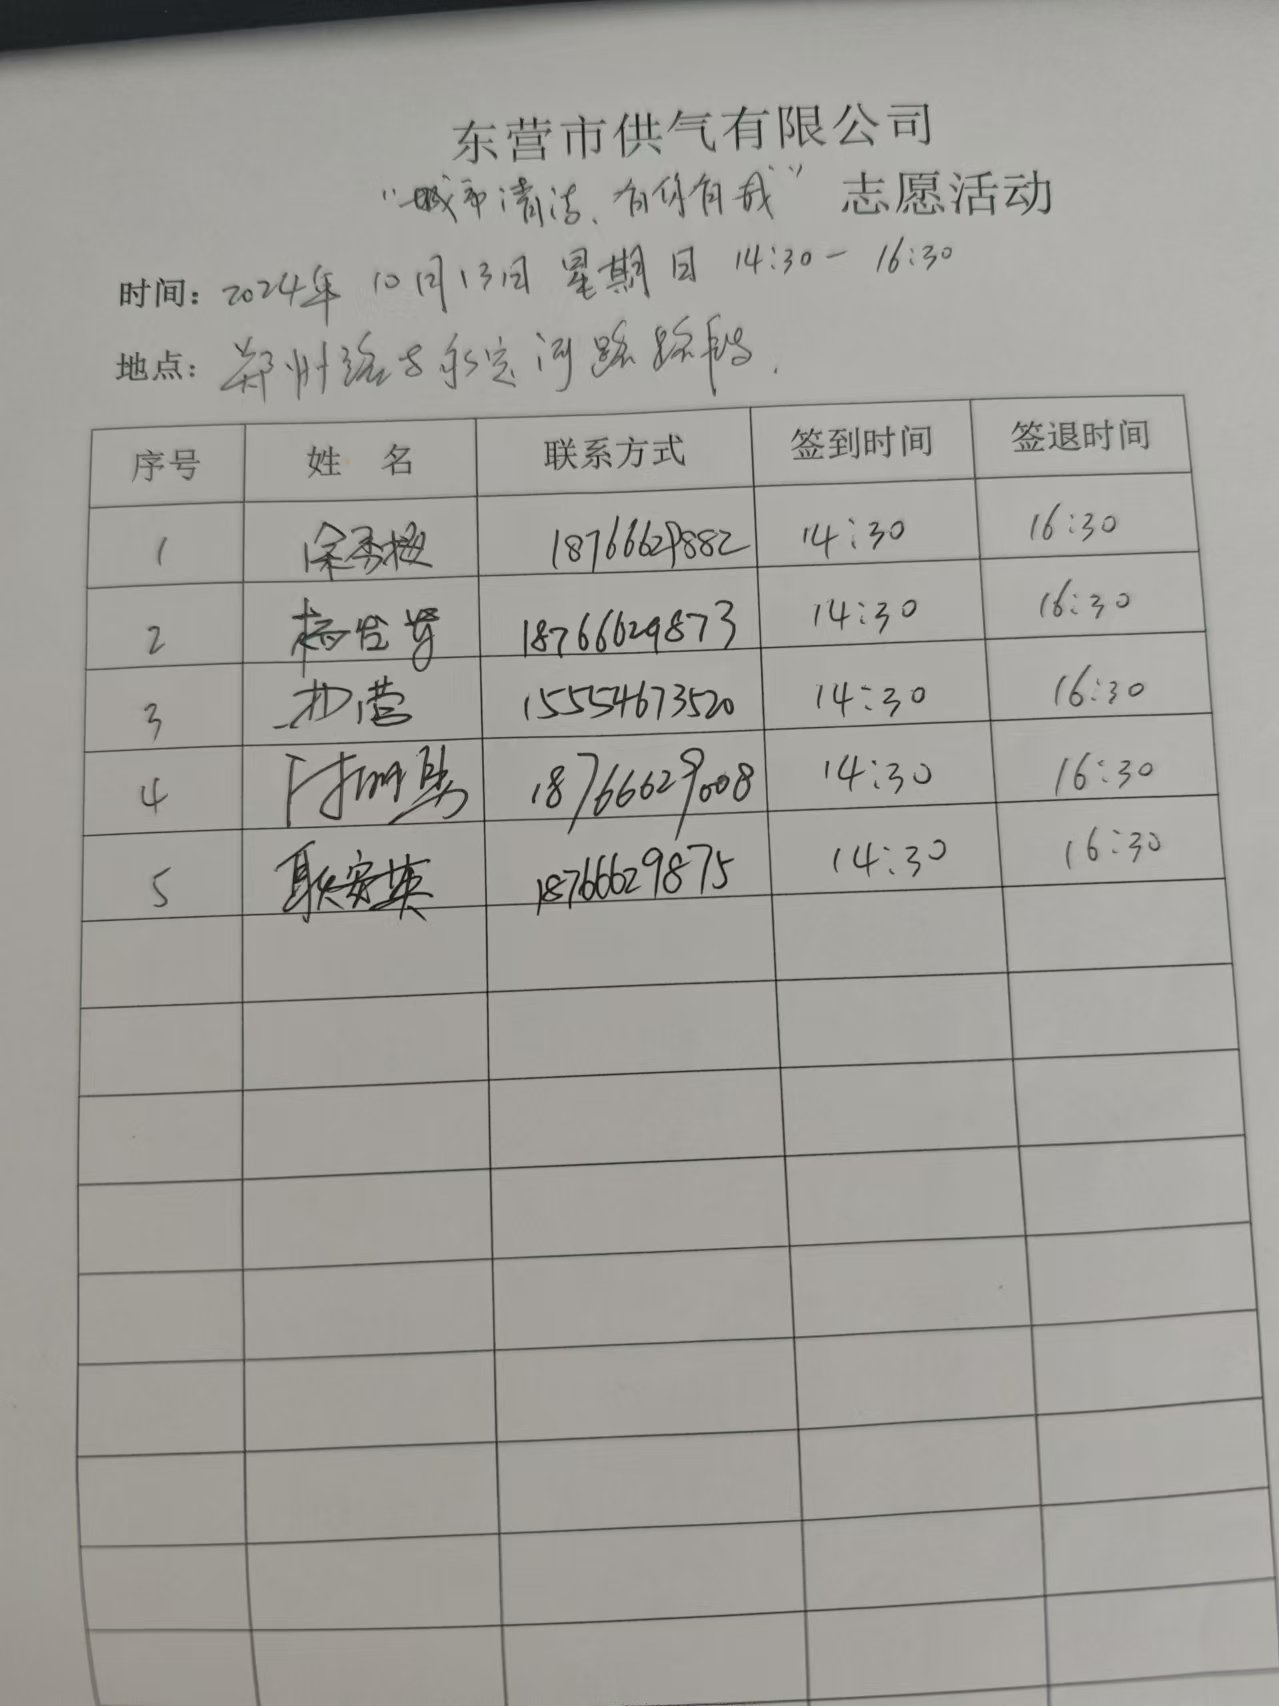 东营市供气有限公司
“城市清洁、有你有我”志愿活动
时间：2024年10月13日 星期日 14:30-16:30
地点：郑州路与永定河路路段.
序号 姓 名 联系方式 签到时间 签退时间
1 18766629882 14:30 16:30
2 18766629873 14:30 16:30
3 15554673520 14:30 16:30
4 18766629008 14:30 16:30
5 耿安英 18766629875 14:30 16:30